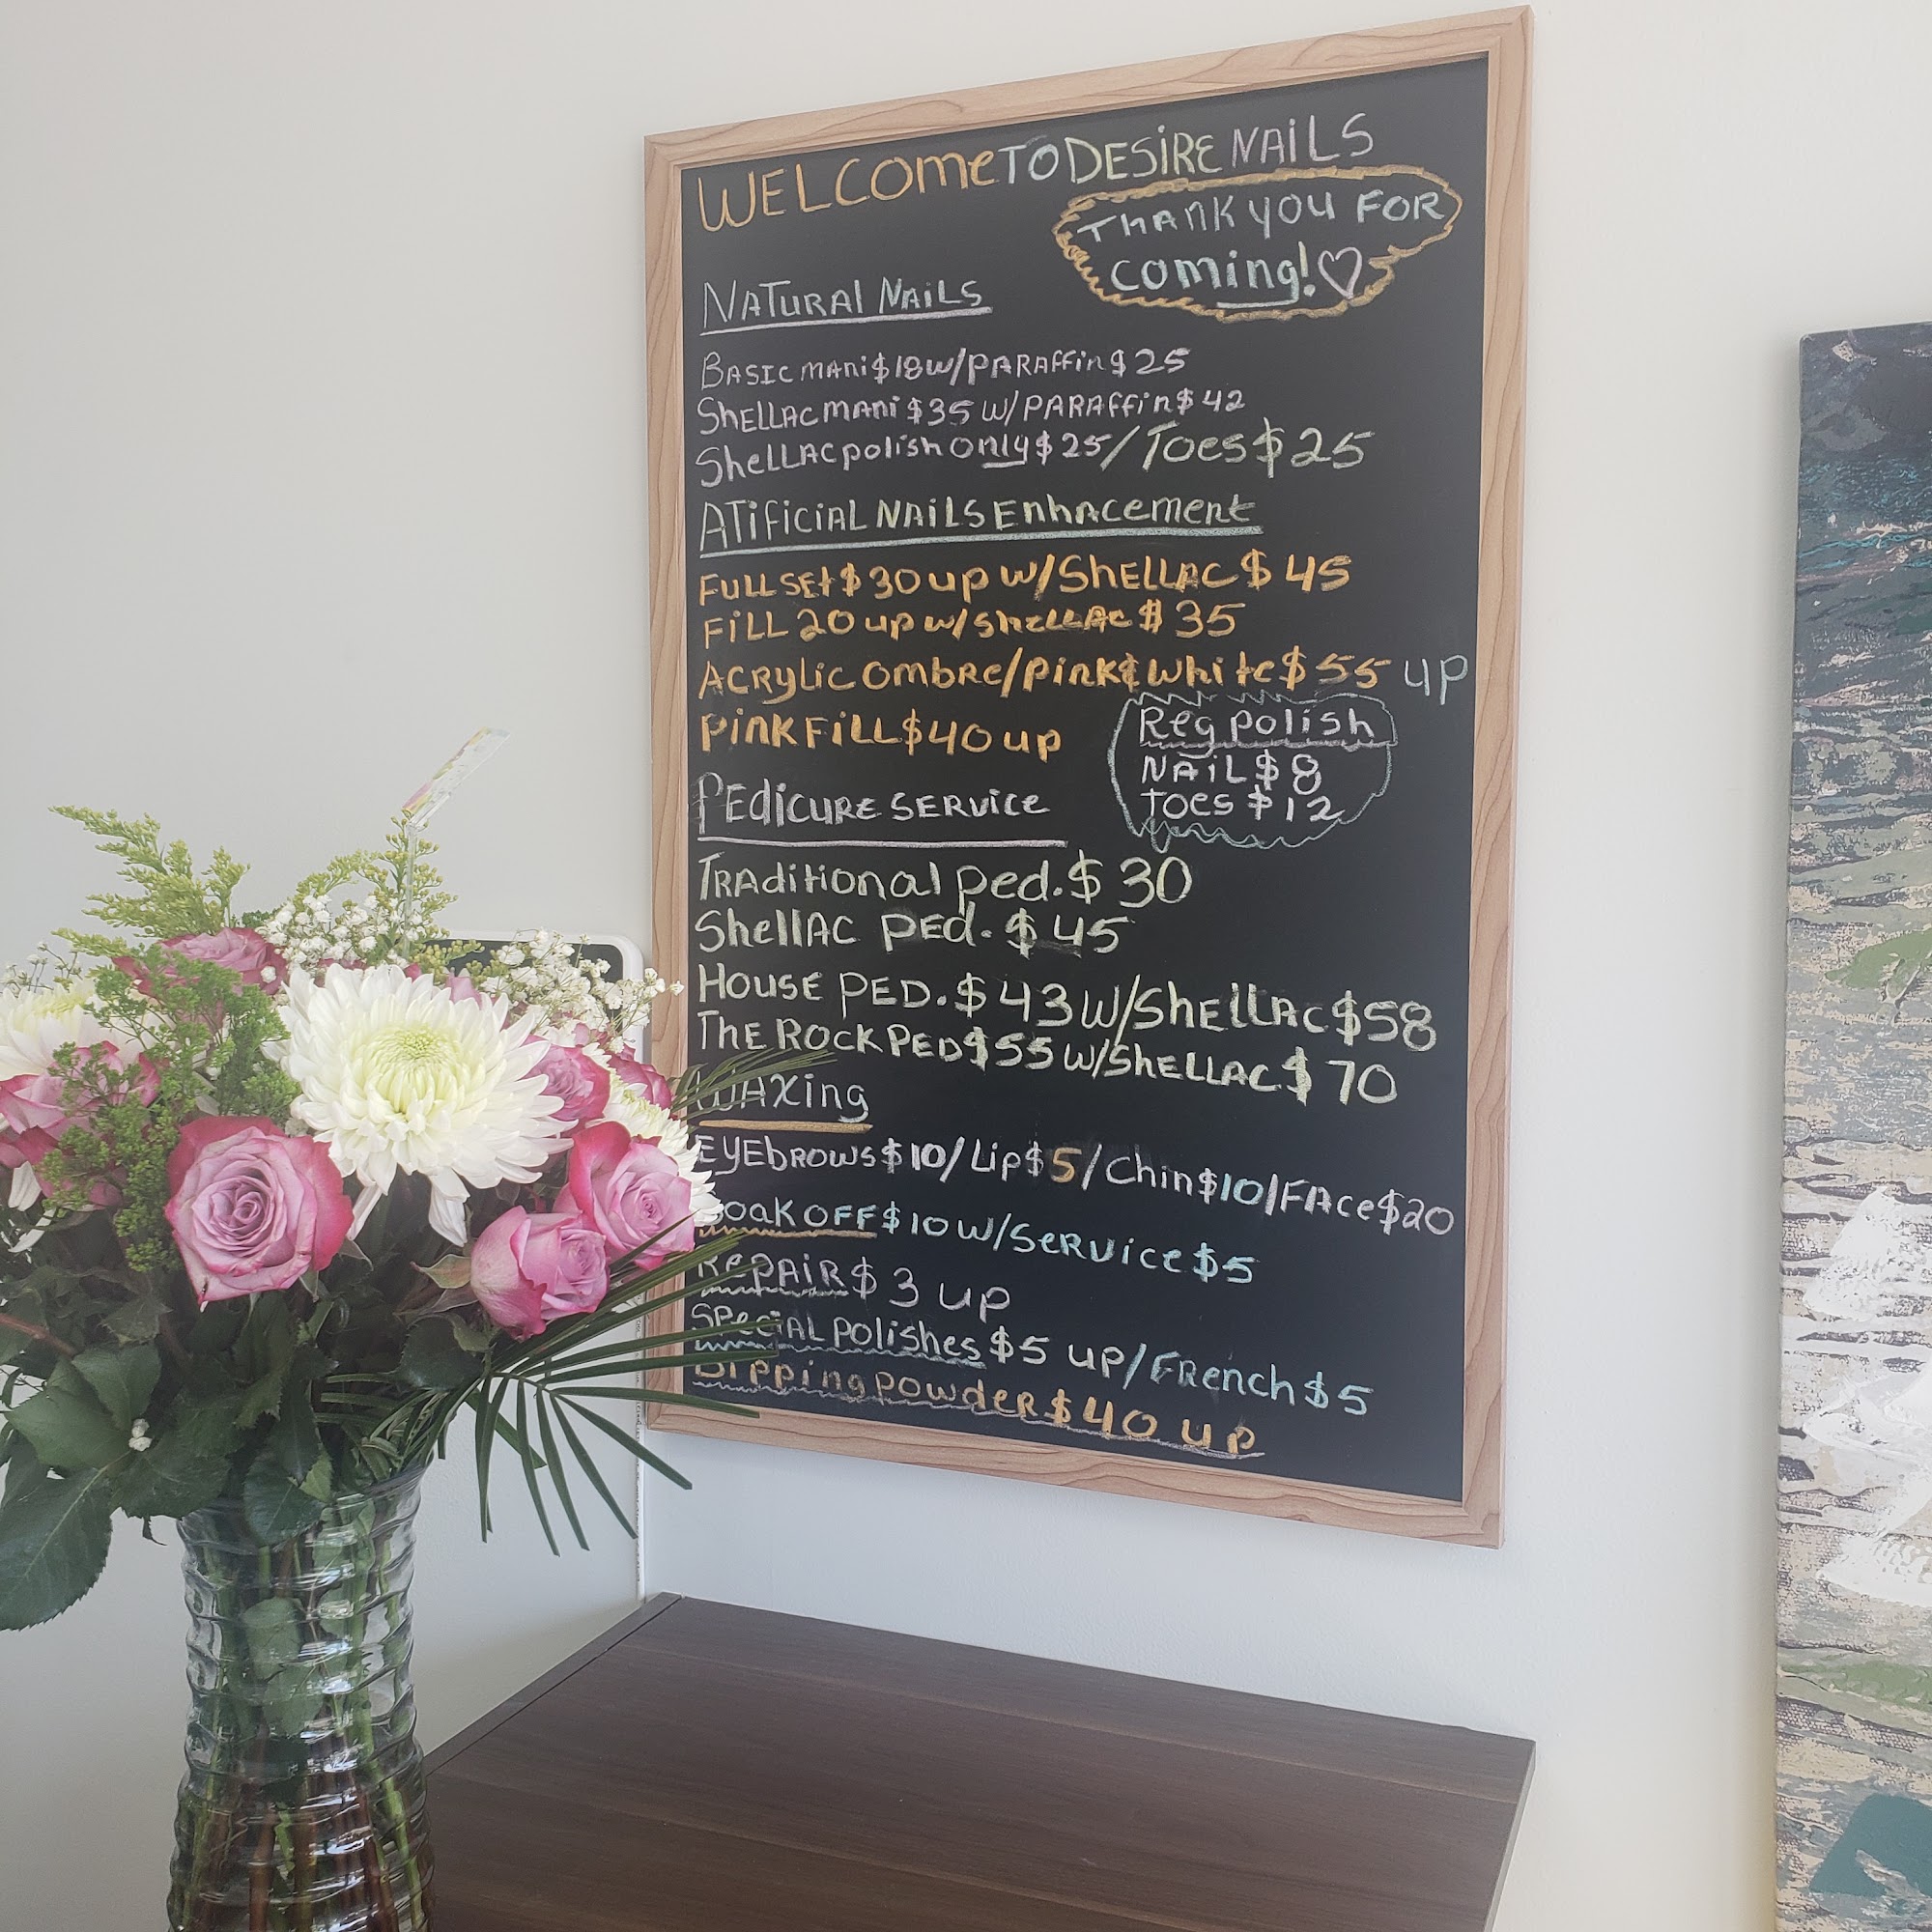 WELCOME TO DESIRE NAILS
THANK YOU FOR
coming!
NATURAL NAILS
BASIC mani $18 w/PARAffin $25
ShELLAC mAni $35 w/PARAffin $42
ShellAC polish only $25/Toes $25
ATificiAL NAILS Enhacement
FULL SEt $30 up w/ShELLAC $45
FiLL 20 up w/shellAc $35
ACRylic Ombre/pink & white $55 up
Pink FiLL $40 up
Reg polish
NAiL $8
toes $12
PEdicURE SERVice
TRAditional ped. $30
ShellAC PEd. $45
HOUSE PED. $43 W/ShellAC $58
THE ROCK PED $55 w/ShELLAC $70
WAXing
EYEbROWS $10/Lip $5/Chin $10/FAce $20
SOAK OFF $10 W/SeRvice $5
RePAIR $3 up
SPeciAL polishes $5 up/FRench $5
Dipping powdeR $40 up